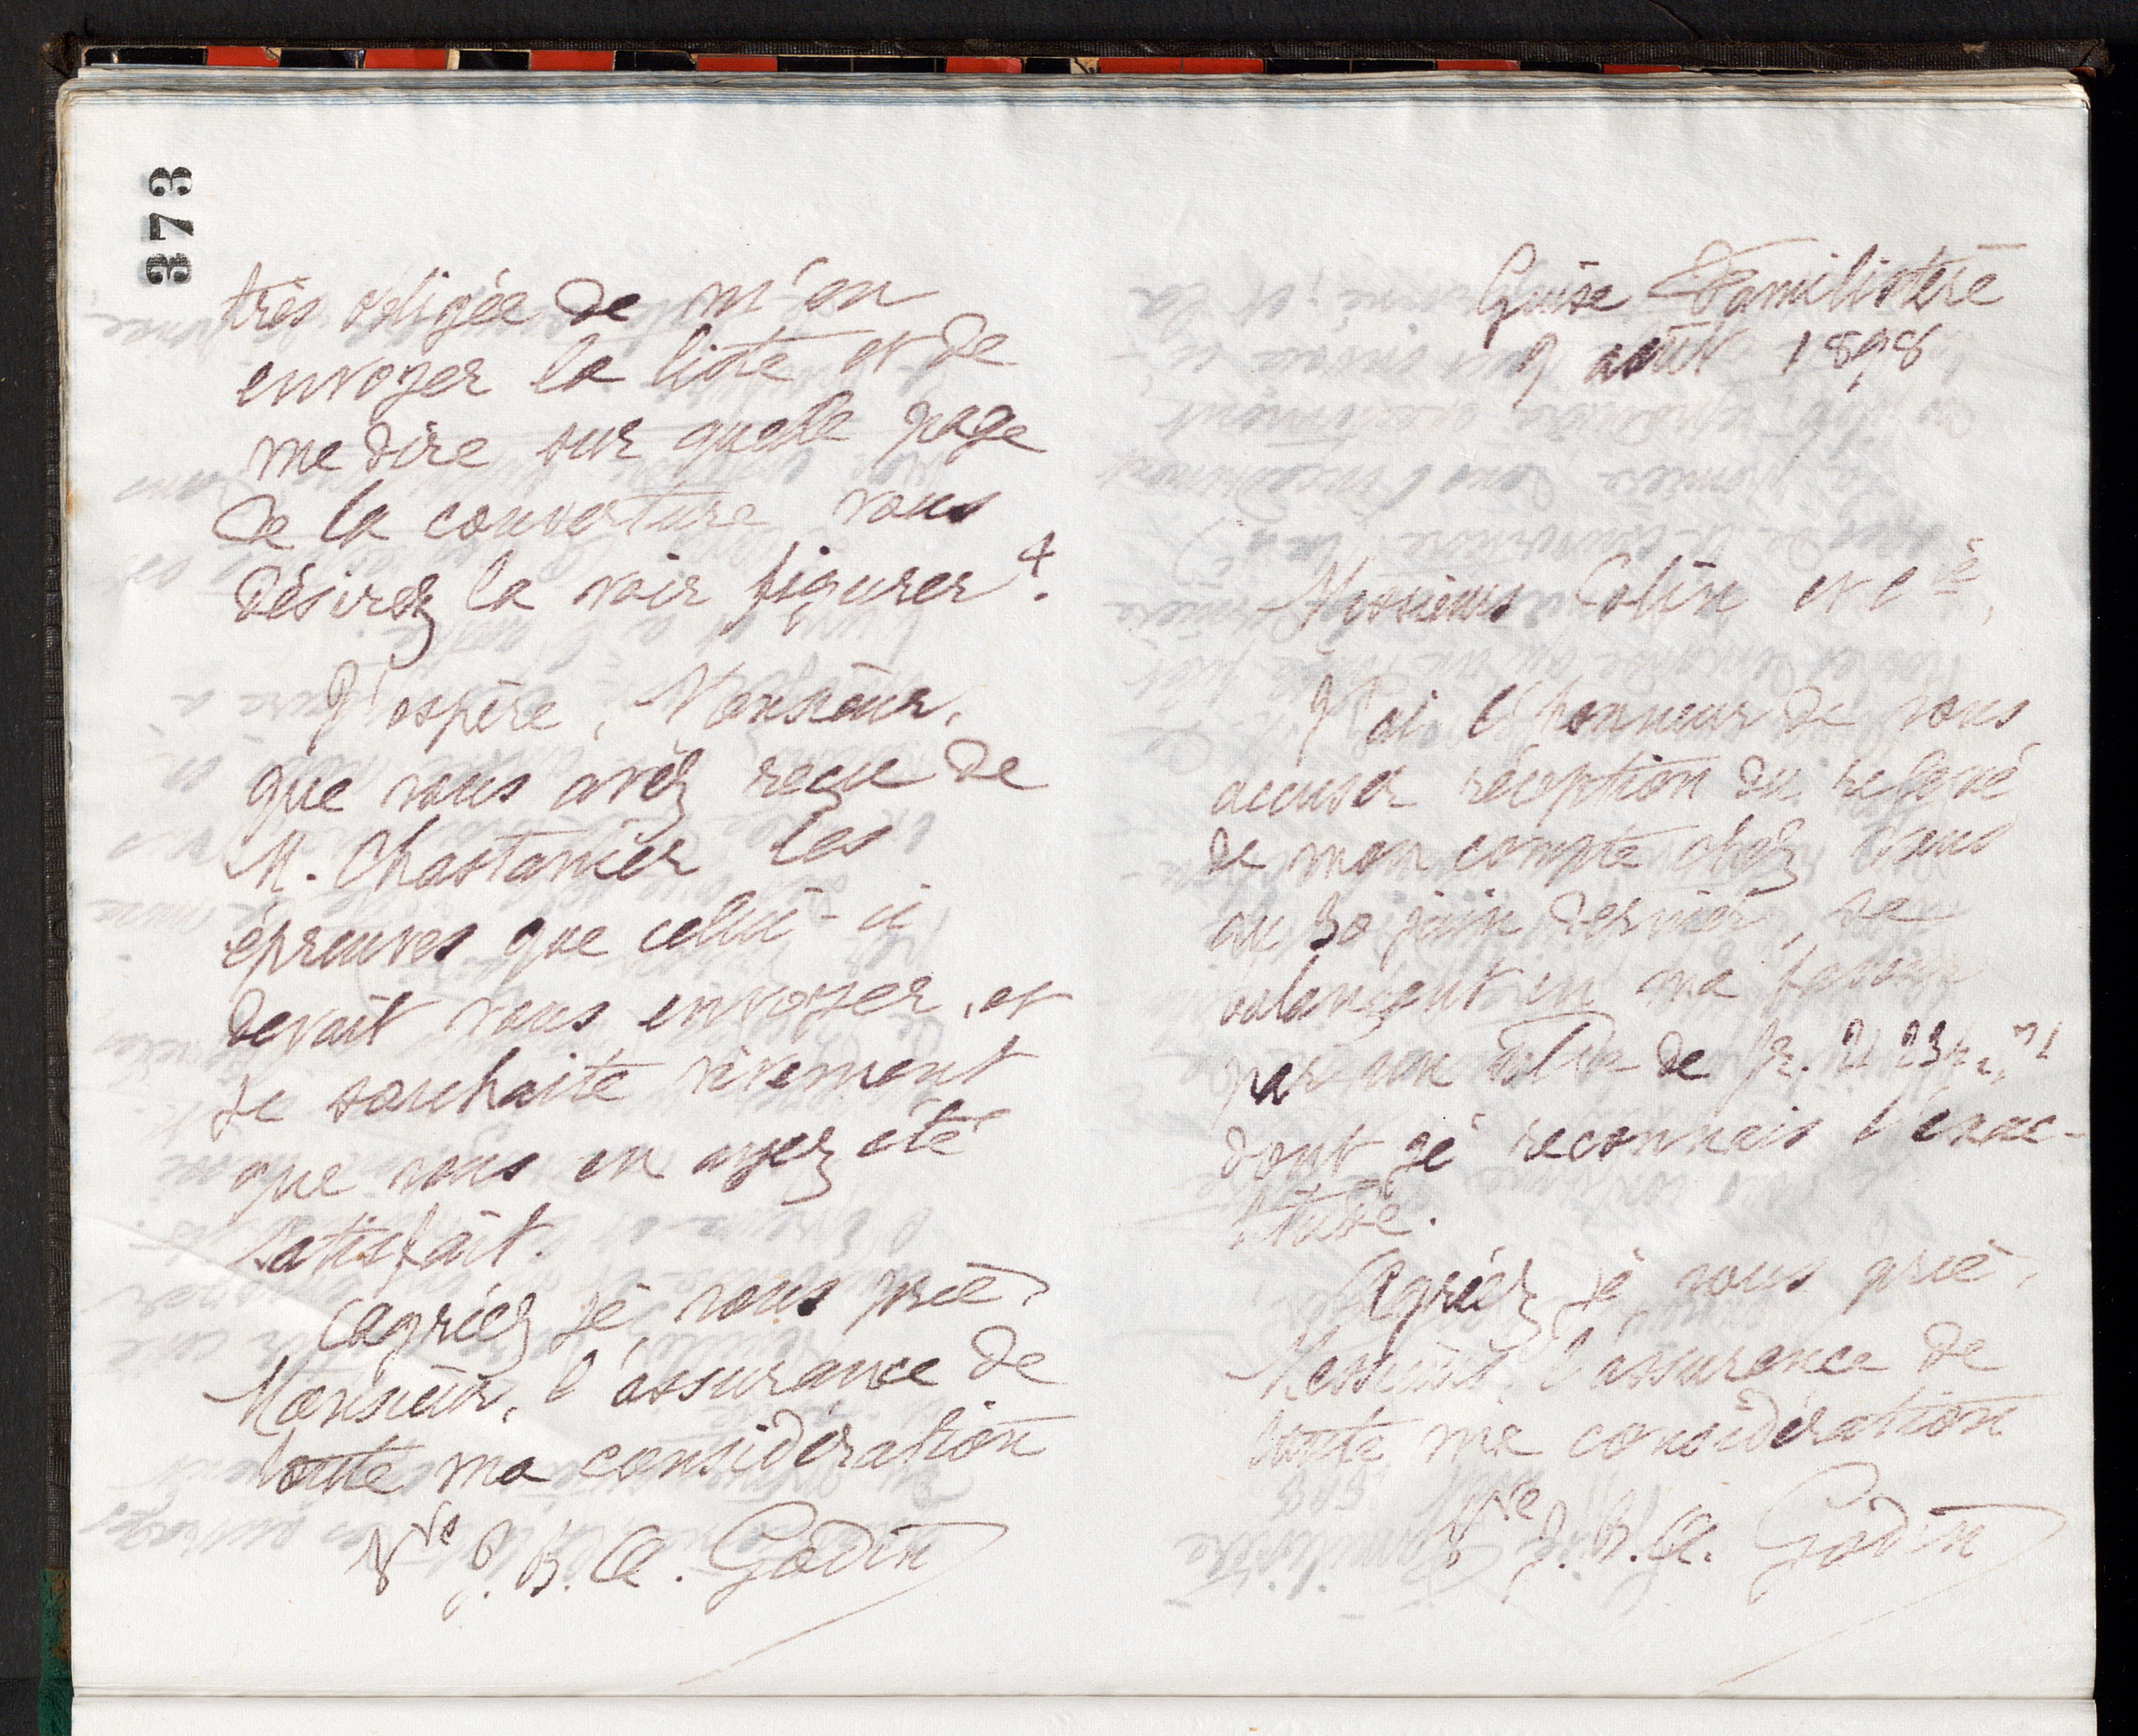 373
très obligée de m'en
envoyer la liste et de
me dire sur quelle page
de la couverture vous
désirez la voir figurer.
J'espère, Monsieur,
que vous avez reçu de
M. Chastanier les
épreuves que celui-ci
devait vous envoyer, et
je souhaite vivement
que vous en ayez été
satisfait.
Agréez je vous prie,
Monsieur, l'assurance de
toute ma considération
Vve J. B. A. Godin
Guise Familistère
9 août 1898
Messieurs et Cie,
J'ai l'honneur de vous
accuser réception du relevé
de mon compte chez vous
au 30 juin dernier, se
balançant en ma faveur
par un solde de fr.
dont je reconnais l'exac-
titude.
Agréez je vous prie,
Messieurs, l'assurance de
toute ma considération
Vve J. B. A. Godin